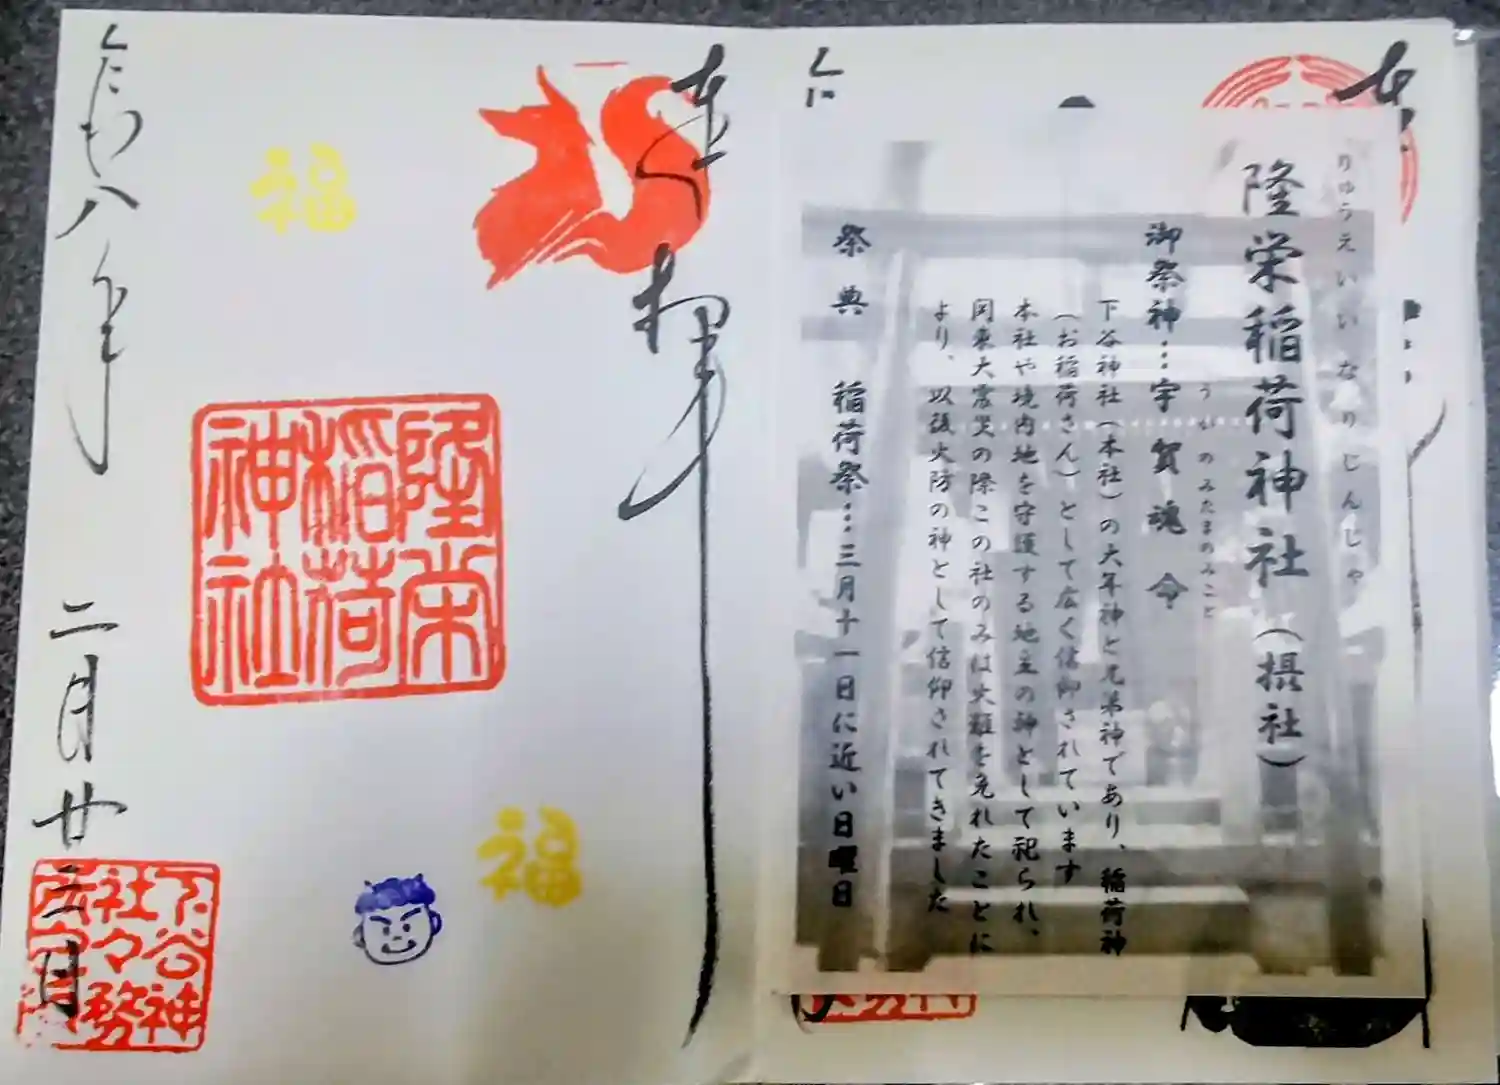 りゅうえいいなりじんじゃ
隆栄稲荷神社(摂社)
うかのみたまのみこと
御祭神…宇賀魂命
下谷神社(本社)の大年神と兄弟神であり、稲荷神
(お稲荷さん)として広く信仰されています
本社や境内地を守護する地主の神として祀られ、
関東大震災の際この社のみは火難を免れたことに
より、以後火防の神として信仰されてきました
祭典 稲荷祭…三月十一日に近い日曜日
奉拝
隆栄
稲荷
神社
福
福
令和八年 二月廿二日
下谷神
社々務